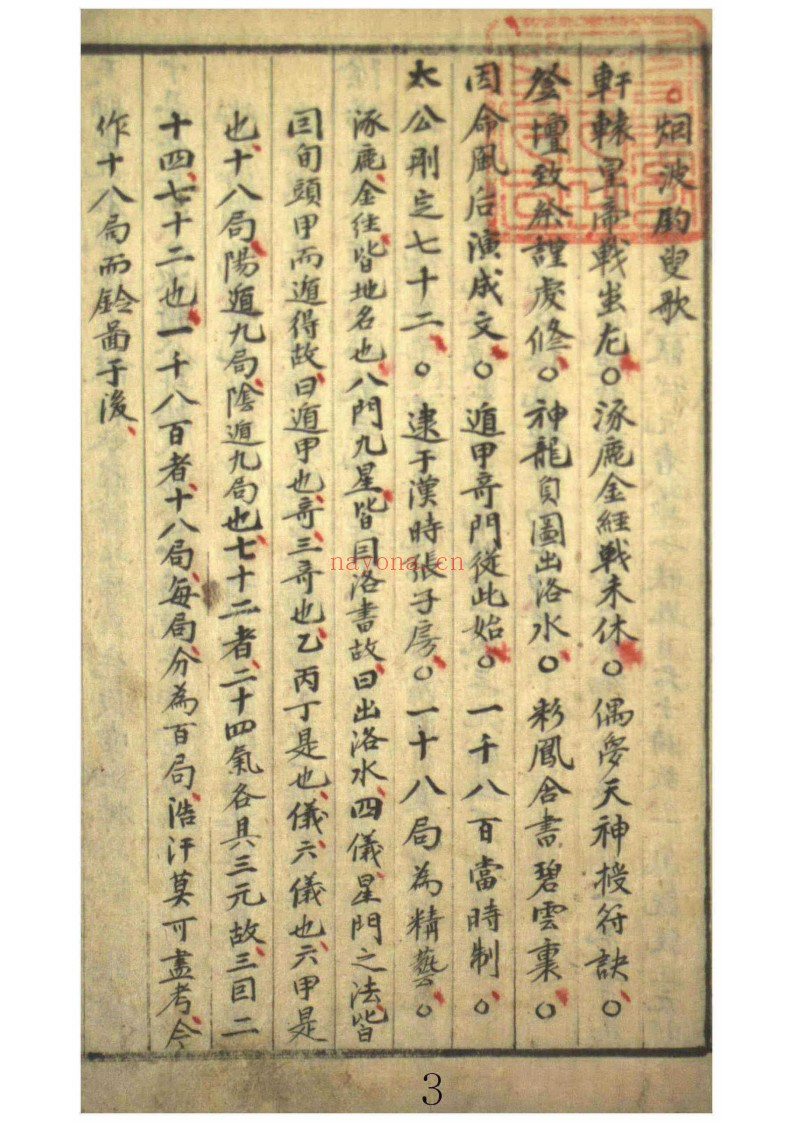 ○烟波釣叟歌
軒轅皇帝戰蚩尤○涿鹿金經戰未休○偶夢天神授符訣○
登壇致祭謹虔修○神龍負圖出洛水○彩鳳含書碧雲裏○
因命風后演成文○遁甲竒門從此始○一千八百當時制○
太公刪定七十二○逮于漢時張子房○一十八局為精藝○
涿鹿金經皆地名也八門九星皆囙洛書故曰出洛水四儀星門之法皆
囙旬頭甲而遁得故曰遁甲也竒三竒也乙丙丁是也儀六儀也六甲是
也十八局陽遁九局陰遁九局也七十二者二十四氣各具三元故三囙二
十四七十二也一千八百者十八局每局分為百局浩汗莫可盡考今
作十八局而鈴啚于後
nayona.cn
3